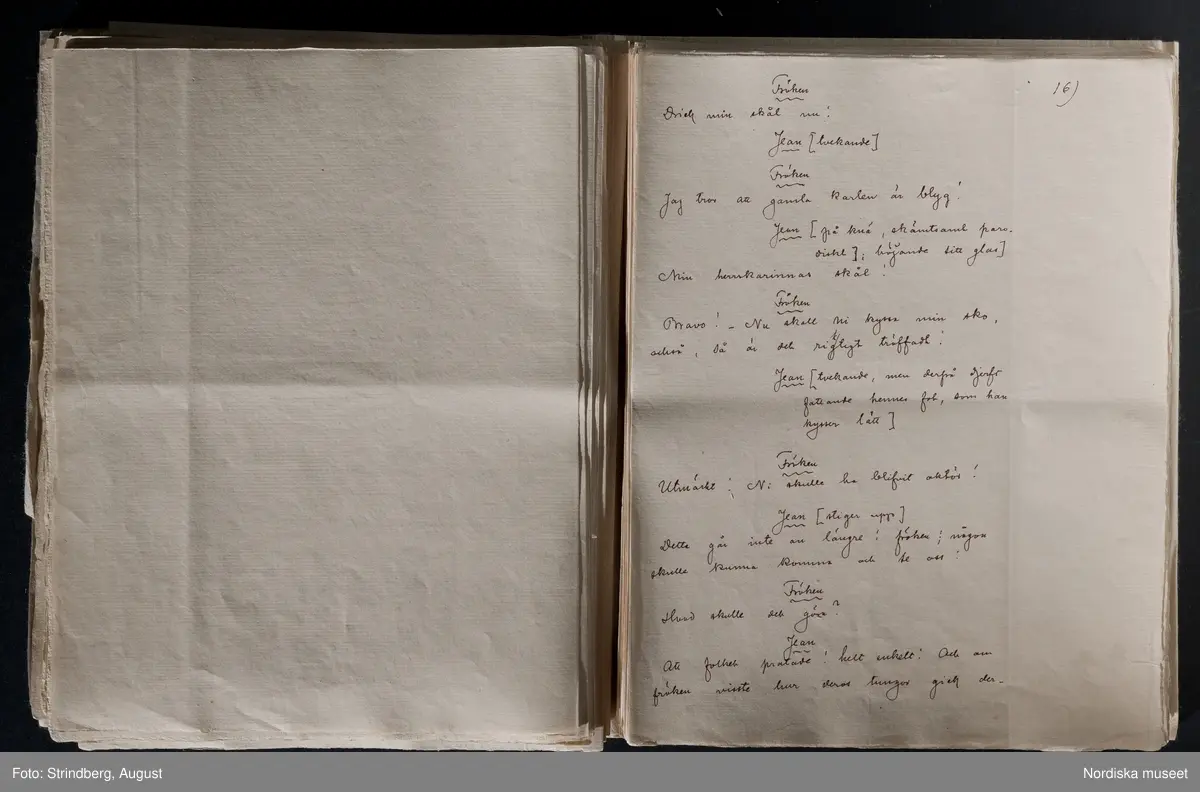 16)
Fröken
Drick min skål nu!
Jean [tvekande]
Fröken
Jag tros att gamla karlen är blyg!
Jean [på knä, skämtsamt paro-
diskt]; höjande sitt glas]
Min herrskarinnas skål!
Fröken
Bravo! – Nu skall Ni kyssa min sko,
också, så är det rigtigt träffadt!
Jean [tvekande, men derpå djerft
fattande hennes fot, som han
kysser lätt]
Fröken
Utmärkt! Ni skulle ha blifvit aktör!
Jean [stiger upp]
Detta går inte an längre! fröken; någon
skulle kunna komma och se oss!
Fröken
Hvad skulle det göra?
Jean
Att folket pratade! helt enkelt! Och om
fröken visste hur deras tungor gick der-
Foto: Strindberg, August
Nordiska museet